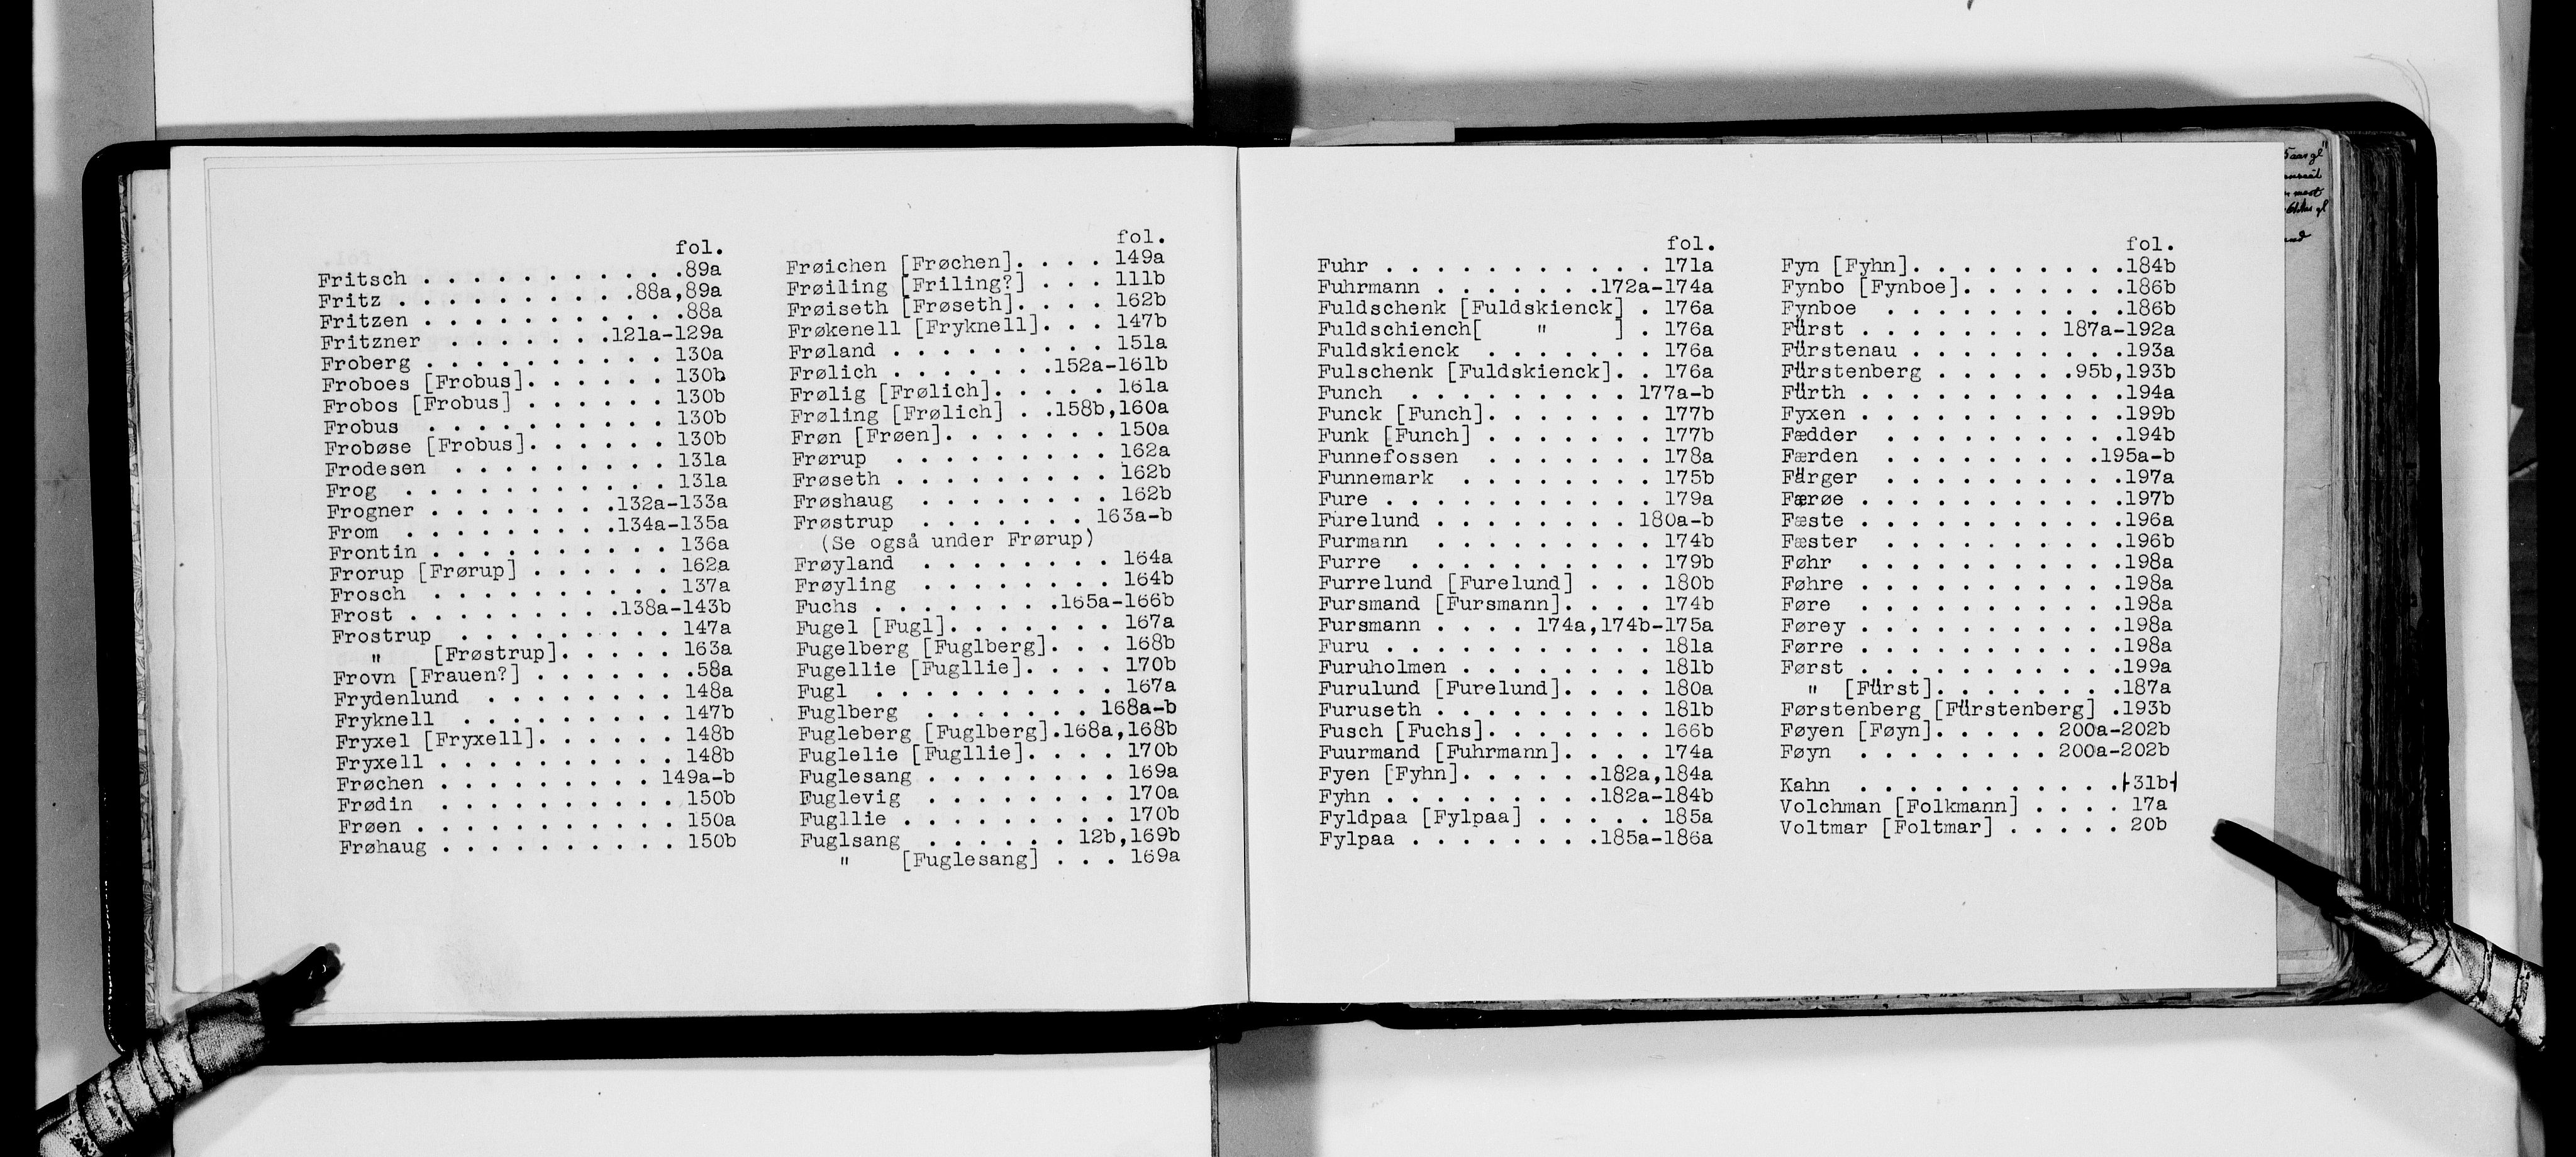 fol.
Fritsch . . . . . . . . . . .89a
Fritz . . . . . . . . . .88a,89a
Fritzen . . . . . . . . . . .88a
Fritzner . . . . . . .121a-129a
Froberg . . . . . . . . . . 130a
Froboes [Frobus]. . . . . . 130b
Frobos [Frobus] . . . . . . 130b
Frobus . . . . . . . . . . 130b
Frobøse [Frobus]. . . . . . 130b
Frodesen . . . . . . . . . 131a
Frog . . . . . . . . . . . 131a
Frogner . . . . . . . .132a-133a
From . . . . . . . . .134a-135a
Frontin . . . . . . . . . . 136a
Frorup [Frørup] . . . . . . 162a
Frosch . . . . . . . . . . 137a
Frost . . . . . . . . .138a-143b
Frostrup . . . . . . . . . 147a
" [Frøstrup]. . . . . 163a
Frovn [Frauen?] . . . . . . .58a
Frydenlund . . . . . . . . 148a
Fryknell . . . . . . . . . 147b
Fryxel [Fryxell]. . . . . . 148b
Fryxell . . . . . . . . . . 148b
Frøchen . . . . . . . . . 149a-b
Frødin . . . . . . . . . . 150b
Frøen . . . . . . . . . . . 150a
Frøhaug . . . . . . . . . . 150b
fol.
Frøichen [Frøchen]. . . . 149a
Frøiling [Friling?] . . . 111b
Frøiseth [Frøseth]. . . . 162b
Frøkenell [Fryknell]. . . 147b
Frøland . . . . . . . . . 151a
Frølich . . . . . . .152a-161b
Frølig [Frølich]. . . . . 161a
Frøling [Frølich] . .158b,160a
Frøn [Frøen]. . . . . . . 150a
Frørup . . . . . . . . . 162a
Frøseth . . . . . . . . . 162b
Frøshaug . . . . . . . . 162b
Frøstrup . . . . . . . 163a-b
(Se også under Frørup)
Frøyland . . . . . . . . 164a
Frøyling . . . . . . . . 164b
Fuchs . . . . . . . .165a-166b
Fugel [Fugl]. . . . . . . 167a
Fugelberg [Fuglberg]. . . 168b
Fugellie [Fugllie]. . . . 170b
Fugl . . . . . . . . . . 167a
Fuglberg . . . . . . . 168a-b
Fugleberg [Fuglberg].168a,168b
Fuglelie [Fugllie]. . . . 170b
Fuglesang . . . . . . . . 169a
Fuglevig . . . . . . . . 170a
Fugllie . . . . . . . . . 170b
Fuglsang . . . . . . 12b,169b
" [Fuglesang] . . . 169a
fol.
Fuhr . . . . . . . . . . . 171a
Fuhrmann . . . . . . .172a-174a
Fuldschenk [Fuldskienck] . 176a
Fuldschiench[ " ] . 176a
Fuldskienck . . . . . . . 176a
Fulschenk [Fuldskienck]. . 176a
Funch . . . . . . . . . 177a-b
Funck [Funch]. . . . . . . 177b
Funk [Funch] . . . . . . . 177b
Funnefossen . . . . . . . 178a
Funnemark . . . . . . . . 175b
Fure . . . . . . . . . . . 179a
Furelund . . . . . . . . 180a-b
Furmann . . . . . . . . . 174b
Furre . . . . . . . . . . 179b
Furrelund [Furelund] . . . 180b
Fursmand [Fursmann]. . . . 174b
Fursmann . . . . 174a,174b-175a
Furu . . . . . . . . . . . 181a
Furuholmen . . . . . . . . 181b
Furulund [Furelund]. . . . 180a
Furuseth . . . . . . . . . 181b
Fusch [Fuchs]. . . . . . . 166b
Fuurmand [Fuhrmann]. . . . 174a
Fyen [Fyhn]. . . . . .182a,184a
Fyhn . . . . . . . . .182a-184b
Fyldpaa [Fylpaa] . . . . . 185a
Fylpaa . . . . . . . .185a-186a
fol.
Fyn [Fyhn]. . . . . . . . .184b
Fynbo [Fynboe]. . . . . . .186b
Fynboe . . . . . . . . . .186b
Fürst . . . . . . . . 187a-192a
Fürstenau . . . . . . . . .193a
Fürstenberg . . . . . .95b,193b
Fürth . . . . . . . . . . .194a
Fyxen . . . . . . . . . . .199b
Fædder . . . . . . . . . .194b
Færden . . . . . . . . .195a-b
Färger . . . . . . . . . .197a
Færøe . . . . . . . . . .197b
Fæste . . . . . . . . . . .196a
Fæster . . . . . . . . . .196b
Føhr . . . . . . . . . . .198a
Føhre . . . . . . . . . . .198a
Føre . . . . . . . . . . .198a
Førey . . . . . . . . . . .198a
Førre . . . . . . . . . . .198a
Først . . . . . . . . . . .199a
" [Fürst]. . . . . . . .187a
Førstenberg [Fürstenberg] .193b
Føyen [Føyn]. . . . . 200a-202b
Føyn . . . . . . . . 200a-202b
Kahn . . . . . . . . . . .⌊31b⌋
Volchman [Folkmann] . . . . 17a
Voltmar [Foltmar] . . . . . 20b